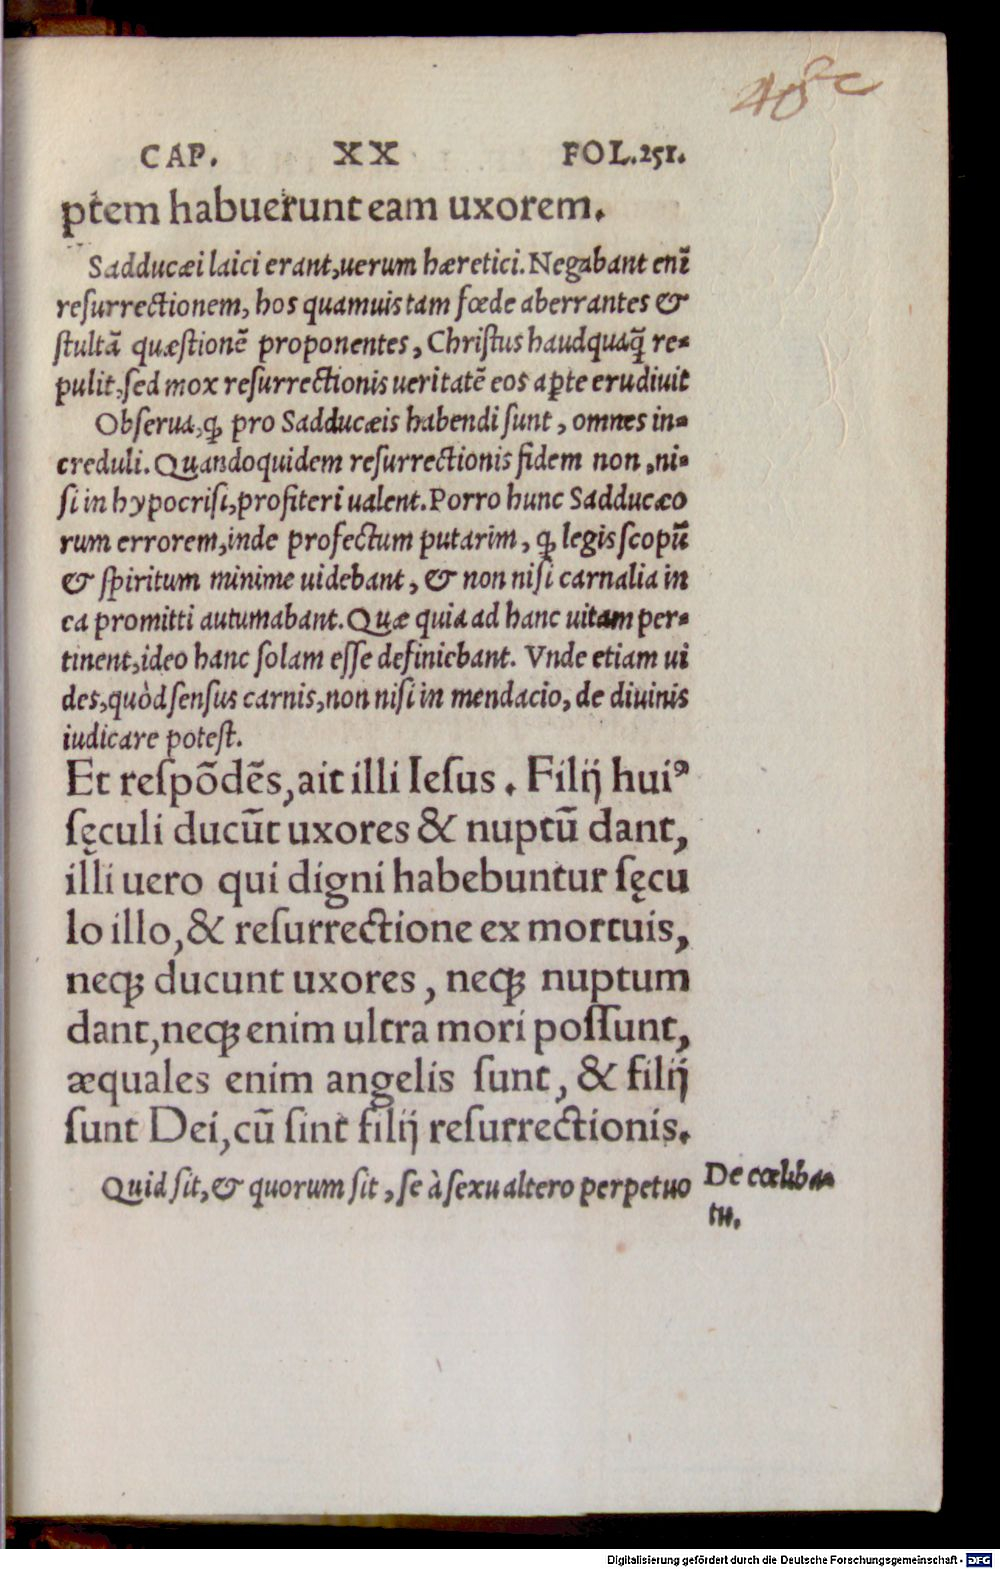 CAP. XX FOL.251.
ptem habuerunt eam uxorem.
Sadducæi laici erant,uerum hæretici.Negabant enĩ
reſurrectionem, hos quamuis tam fœde aberrantes &
ſtultã quæſtionẽ proponentes, Chriſtus haudquaq̃ re-
pulit,ſed mox reſurrectionis ueritatẽ eos aꝑte erudiuit
Obſerua,ꝙ pro Sadducæis habendi ſunt, omnes in-
creduli. Quandoquidem reſurrectionis fidem non,ni-
ſi in hypocriſi,profiteri ualent.Porro hunc Sadducæo
rum errorem,inde profectum putarim, ꝙ legis ſcopũ
& ſpiritum minime uidebant, & non niſi carnalia in
ea promitti autumabant. Quæ quia ad hanc uitam per-
tinent,ideo hanc ſolam eſſe definiebant. Vnde etiam ui
des,quòd ſenſus carnis,non niſi in mendacio, de diuinis
iudicare poteſt.
Et reſpõdẽs,ait illi Ieſus. Filij huiꝰ
ſęculi ducũt uxores & nuptũ dant,
illi uero qui digni habebuntur ſęcu
lo illo,& reſurrectione ex mortuis,
neqꝫ ducunt uxores, neqꝫ nuptum
dant,neqꝫ enim ultra mori poſſunt,
æquales enim angelis ſunt, & filij
ſunt Dei,cũ ſint filij reſurrectionis.
Quid ſit,& quorum ſit, ſe à ſexu altero perpetuo
De cœliba
tu.
Digitalisierung gefördert durch die Deutsche Forschungsgemeinschaft - DFG